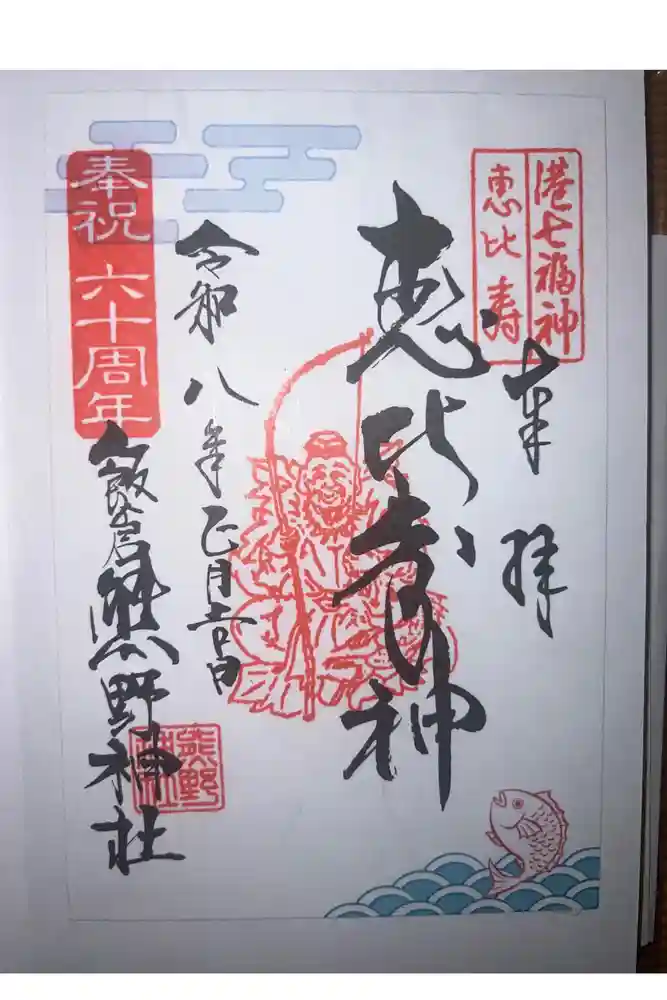 港七福神
恵比寿
奉拝
恵比寿神
令和八年正月吉日
奉祝 六十周年
飯倉熊野神社
熊野
神社